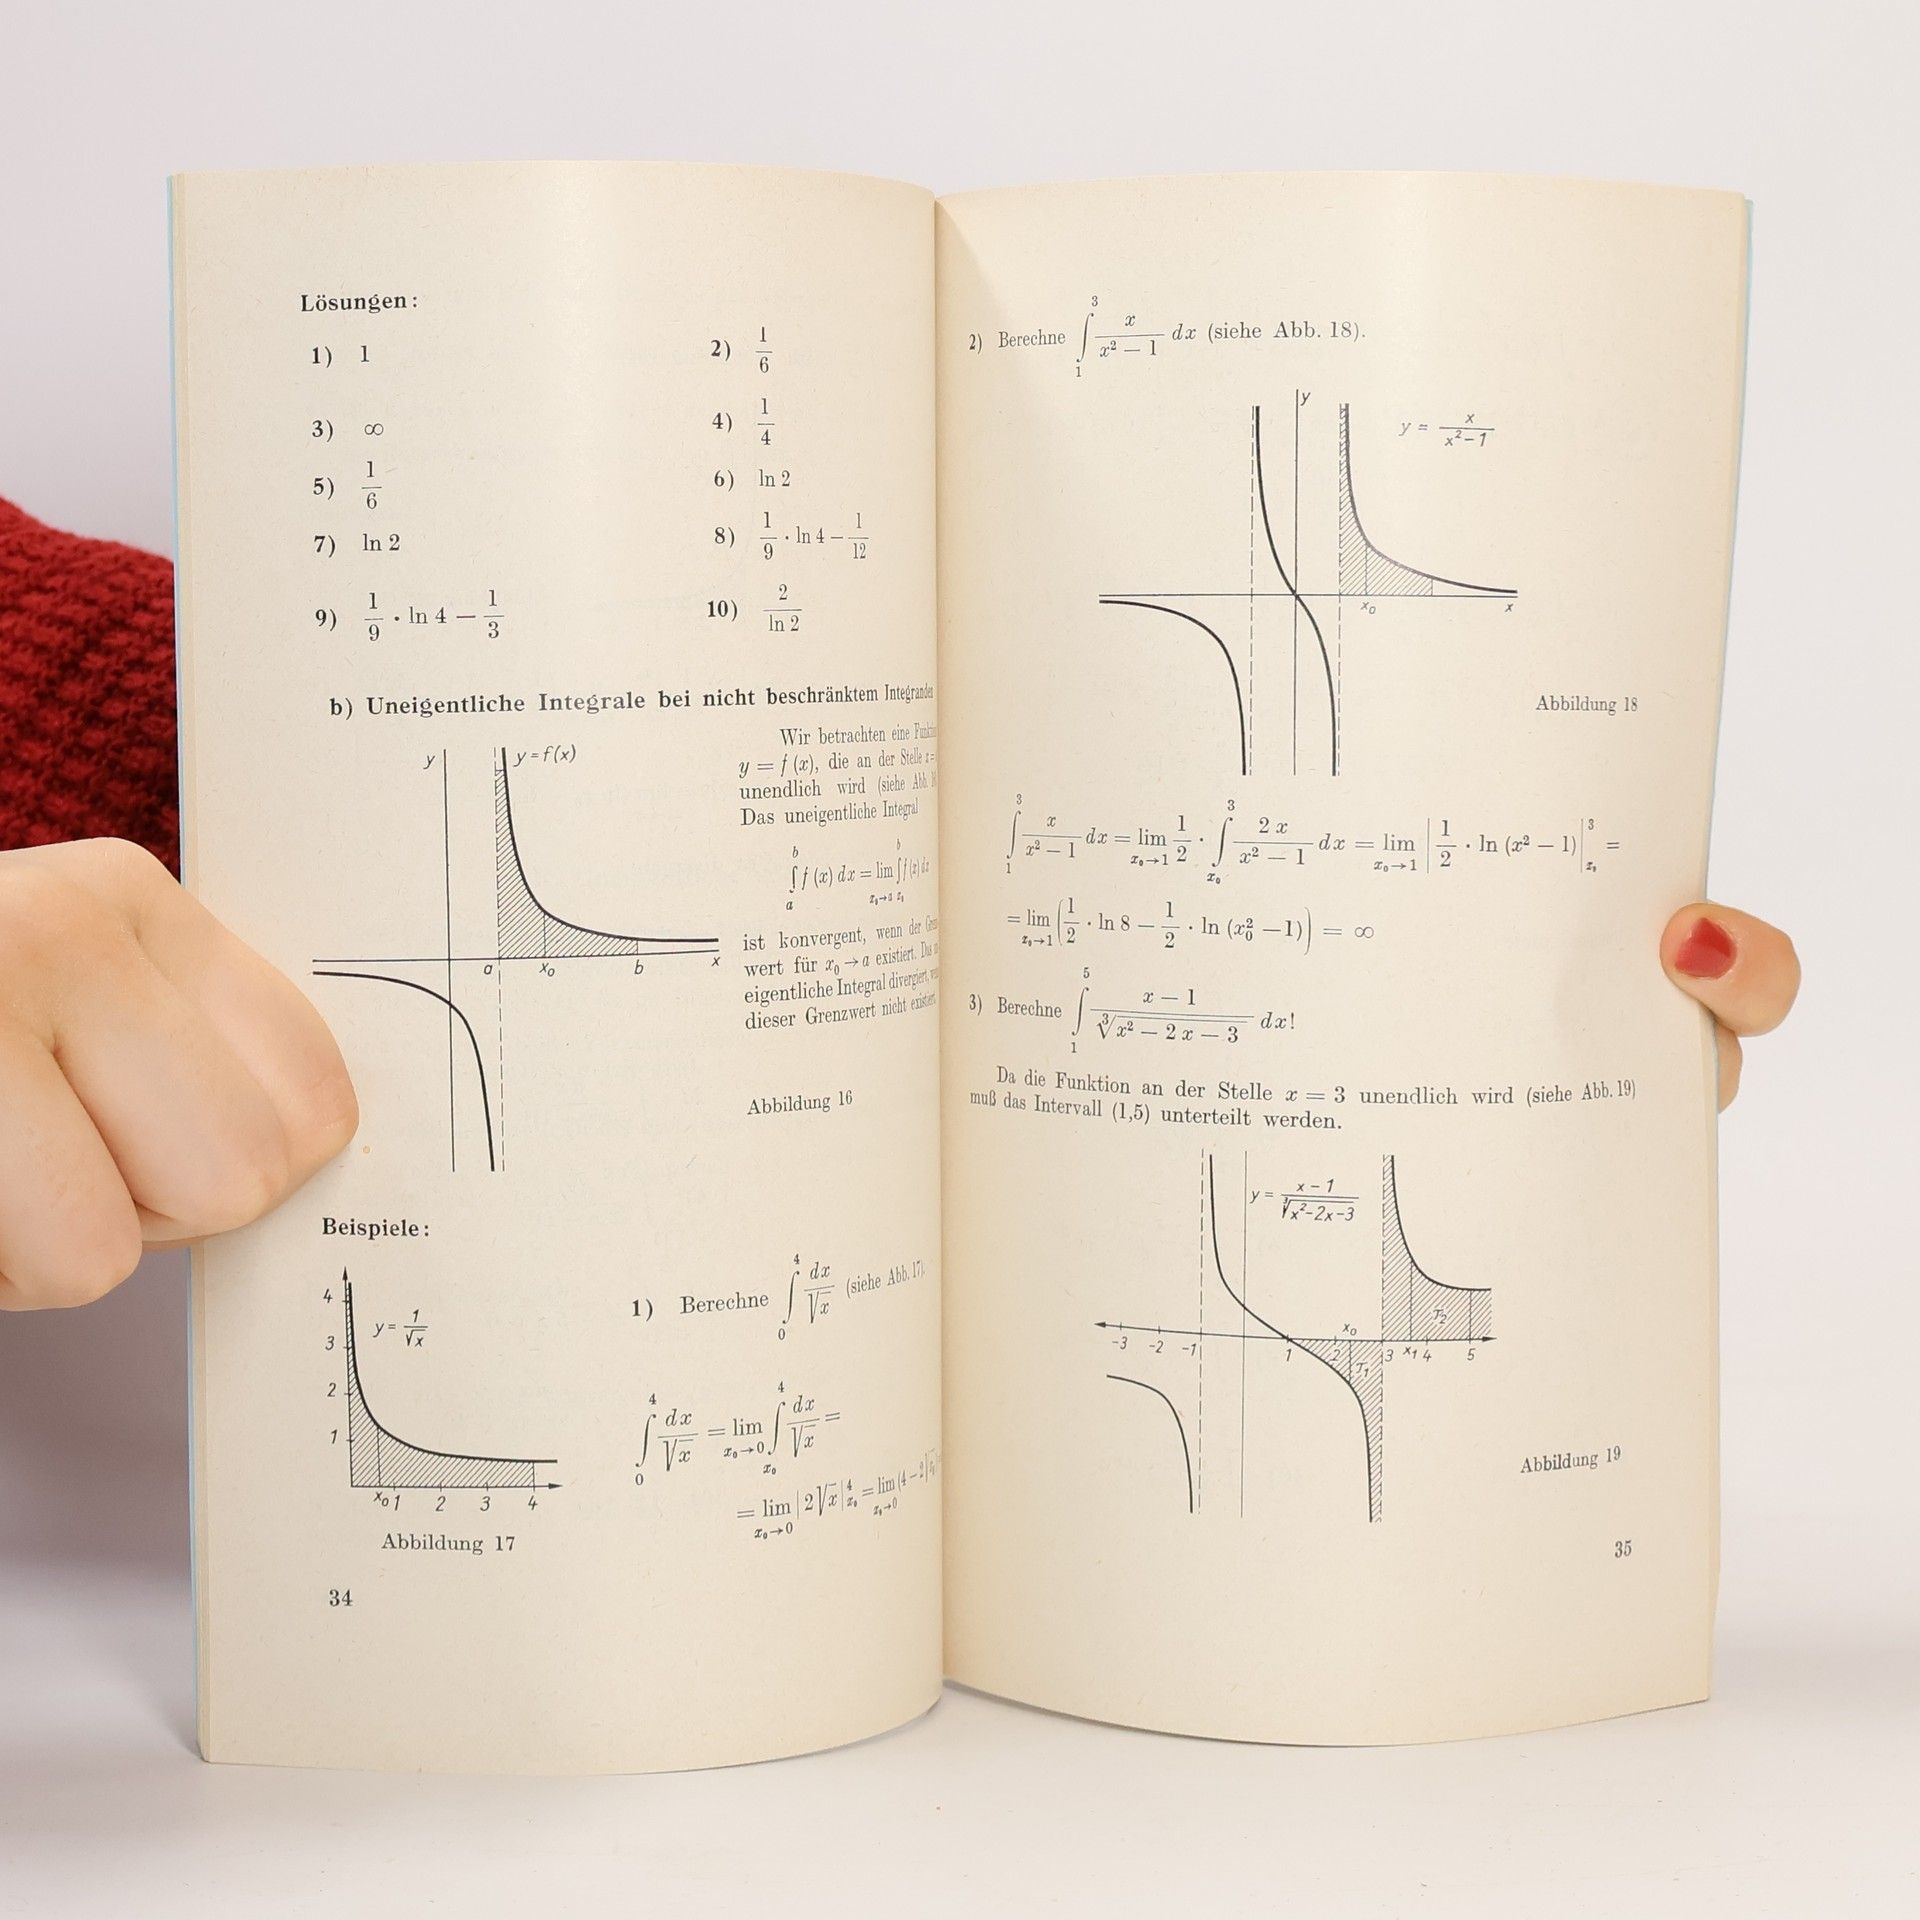 Lösungen:
1) 1 2) 1/6
3) ∞ 4) 1/4
5) 1/6 6) ln 2
7) ln 2 8) 1/9 · ln 4 − 1/12
9) 1/9 · ln 4 − 1/3 10) 2/ln 2
b) Uneigentliche Integrale bei nicht beschränktem
y y = f(x)
a x₀ b x
Wir betrachten eine
y = f (x), die an der Stelle
unendlich wird (siehe Abb.
Das uneigentliche Integral
∫ₐᵇ f (x) dx = lim_{x₀→a} ∫_{x₀}^b f (x) dx
ist konvergent, wenn der
wert für x₀ → a existiert.
eigentliche Integral divergiert,
dieser Grenzwert nicht existiert
Abbildung 16
Beispiele:
4
3
2
1
y = 1/√x
x₀ 1 2 3 4
Abbildung 17
1) Berechne ∫₀⁴ dx/√x (siehe Abb. 17).
∫₀⁴ dx/√x = lim_{x₀→0} ∫_{x₀}^4 dx/√x =
= lim_{x₀→0} | 2√x |_{x₀}^4 = lim_{x₀→0} (4 − 2√x₀
34
2) Berechne ∫₁³ x/(x² − 1) dx (siehe Abb. 18).
y
y = x/(x²−1)
x₀ x
Abbildung 18
∫₁³ x/(x² − 1) dx = lim_{x₀→1} 1/2 · ∫_{x₀}^3 2 x/(x² − 1) dx = lim_{x₀→1} | 1/2 · ln (x² − 1) |_{x₀}^3 =
= lim_{x₀→1} (1/2 · ln 8 − 1/2 · ln (x₀² − 1)) = ∞
3) Berechne ∫₁⁵ (x − 1)/∛(x² − 2 x − 3) dx!
Da die Funktion an der Stelle x = 3 unendlich wird (siehe Abb. 19)
muß das Intervall (1,5) unterteilt werden.
y = (x − 1)/∛(x²−2x−3)
-3 -2 -1 1 2 x₀ 3 x₁ 4 5
T₁ T₂
Abbildung 19
35